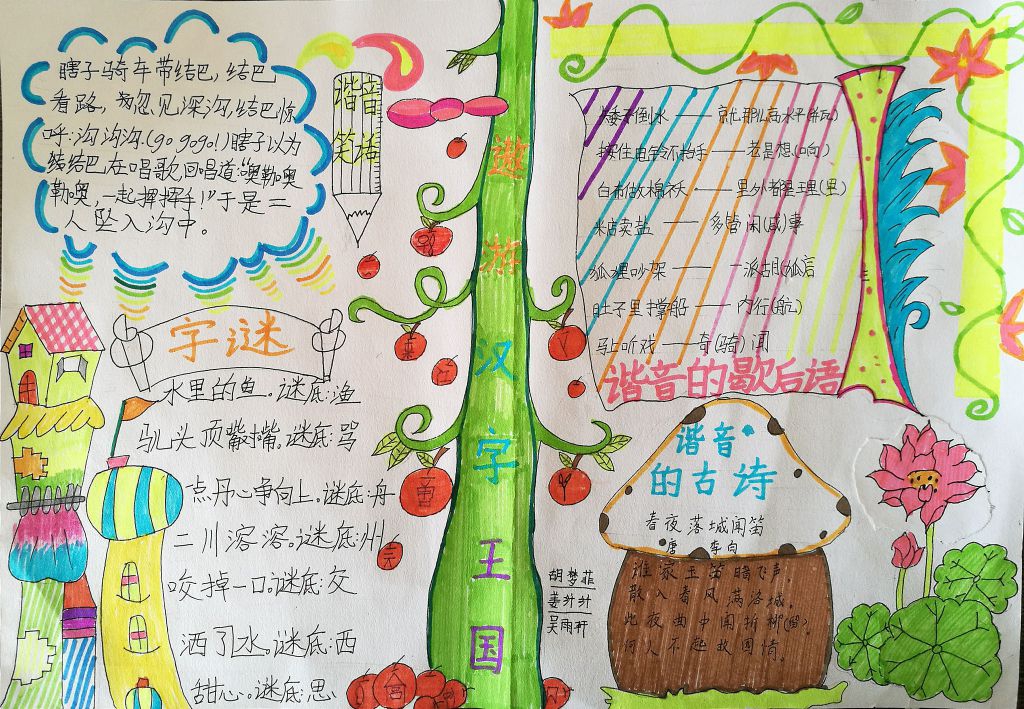 瞎子骑车带结巴，结巴
看路，忽见深沟，结巴惊
呼:沟沟沟(go gogo!)瞎子以为
结巴在唱歌,回唱道:“噢勒噢
勒噢，一起挥挥手!”于是二
人坠入沟中。
谐音
笑话
字谜
水里的鱼。谜底:渔
马儿头顶戴嘴。谜底:骂
点丹心争向上。谜底:舟
二川溶溶。谜底:州
咬掉一口。谜底:交
洒了水。谜底:西
甜心。谜底:思
遨游汉字王国
倒水——就那么高水平(瓶)
按住电铃不抬手——老是想(响)
白布做棉衣——里外都是理(里)
店卖盐——多管闲(咸)事
狐狸吵架——一派胡(狐)言
肚子里撑船——内行(航)
马上听戏——奇(骑)闻
谐音的歇后语
谐音
的古诗
春夜落城闻笛
唐 李白
谁家玉笛暗飞声，
散入春风满洛城。
此夜曲中闻折柳(留)，
何人不起故园情。
胡梦菲
姜
吴雨轩